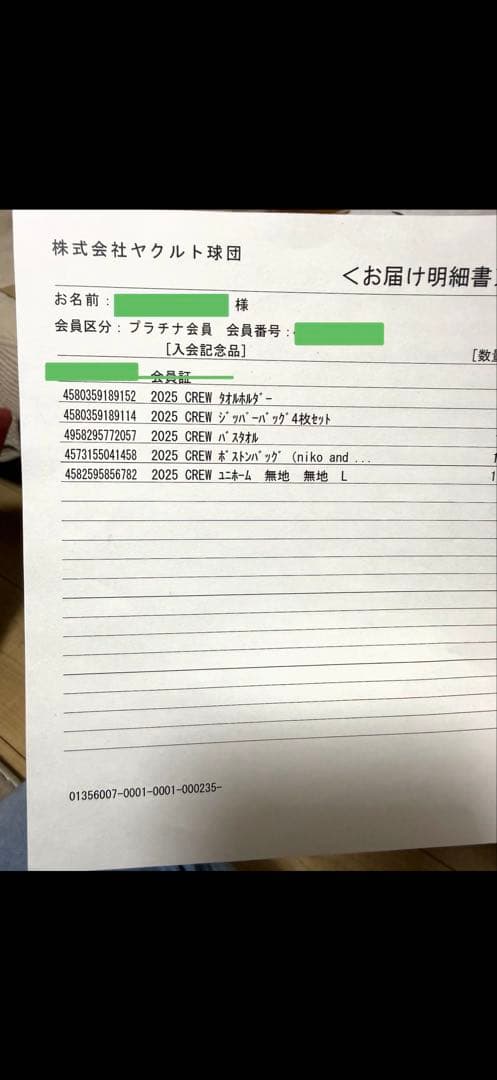 株式会社ヤクルト球団
＜お届け明細書
お名前： 様
会員区分：プラチナ会員 会員番号：
[入会記念品] [数量
会員証
4580359189152 2025 CREW ﾀｵﾙﾎﾙﾀﾞｰ
4580359189114 2025 CREW ｼﾞｯﾊﾟｰﾊﾞｯｸﾞ4枚セット
4958295772057 2025 CREW ﾊﾞｽﾀｵﾙ
4573155041458 2025 CREW ﾎﾞｽﾄﾝﾊﾞｯｸﾞ (niko and ... 1
4582595856782 2025 CREW ﾕﾆﾎｰﾑ 無地 無地 L 1
01356007-0001-0001-000235-